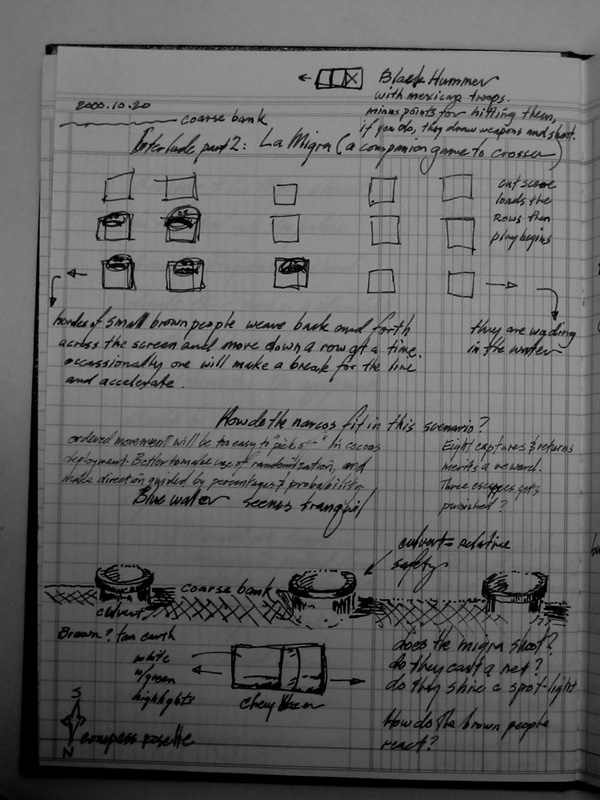 Black Hummer
with mexican troops.
minus points for hitting them,
if you do, they draw weapons and shoot.
2000.10.20
coarse bank
Interlude part 2: La Migra (a companion game to Crosser)
cut scene
loads the
rows then
play begins
hordes of small brown people weave back and forth
across the screen and move down a row at a time.
occassionally one will make a break for the line
and accelerate.
they are wading
in the water
How do the narcos fit in this scenario?
ordered movement will be too easy to "pick off" in
deployment. Better to make use of randomization, and
make direction guided by percentages & probability.
Eight captures & returns
merits a reward.
Three escapes gets
punished?
Blue water seems tranquil
culvert = relative
safety
coarse bank
culvert
Brown? tan earth
white
w/green
highlights
Chevy
does the migra shoot?
do they cast a net?
do they shine a spot-light
How do the brown people
react?
S
N
compass rosette